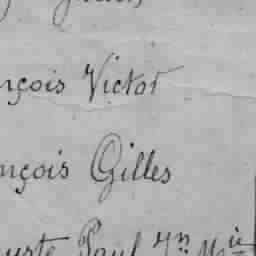 nçois Victor
nçois Gilles
uste Paul Jn Mie